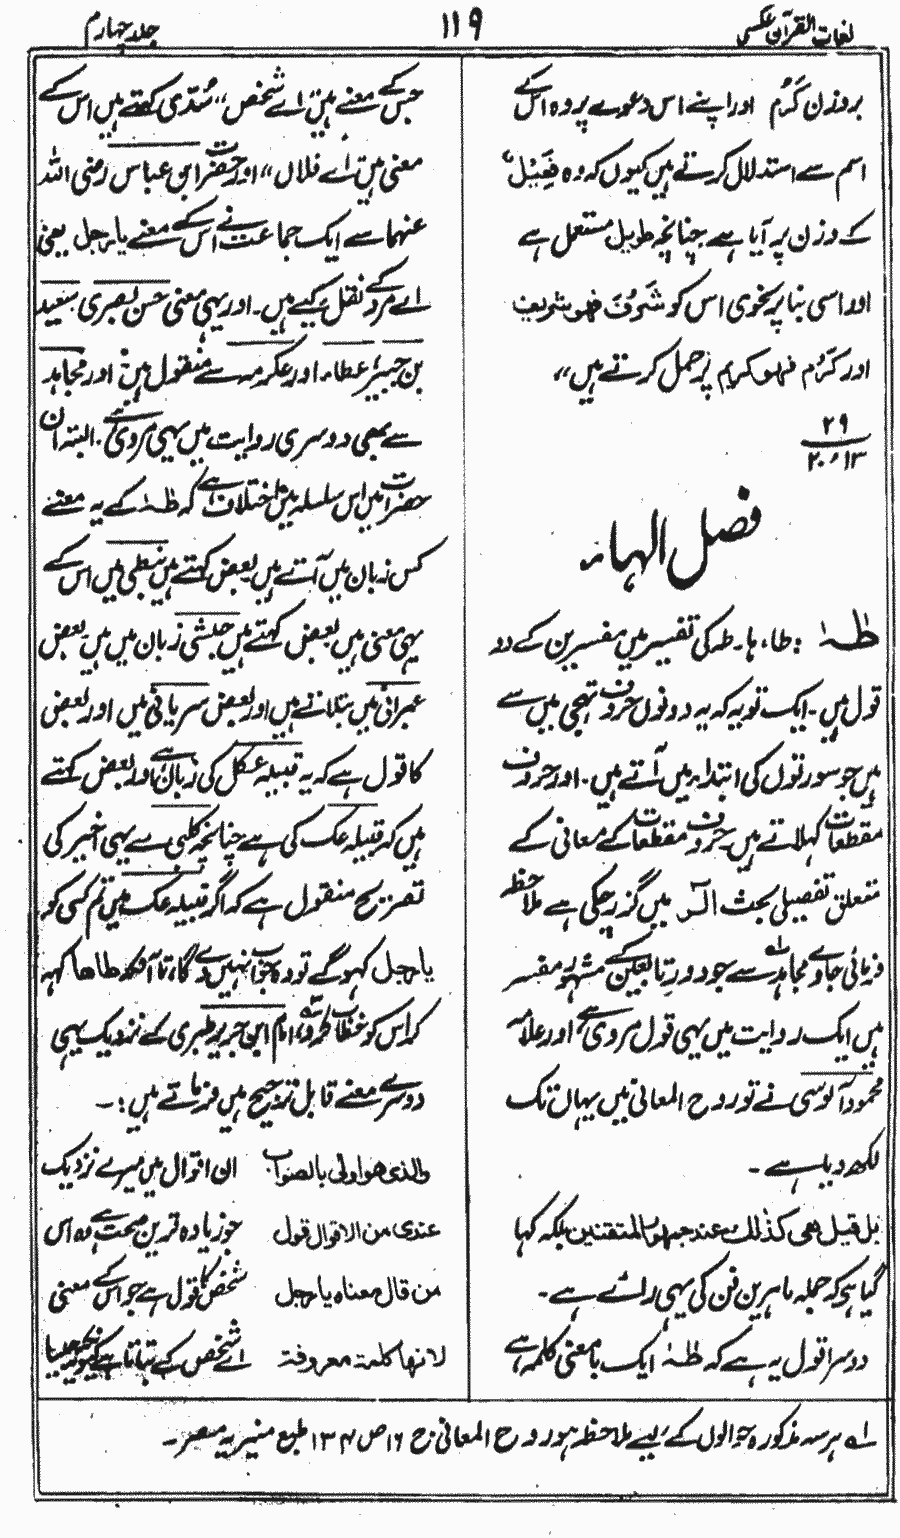 لغات القرآن عکسی
۱۱۹
جلد چہارم
بروزن کَرُمَ اور اپنے اس دعوے پر وہ اس کے
اسم سے استدلال کرتے ہیں کیوں کہ وہ فَعِیْلٌ
کے وزن پر آیا ہے چنانچہ طویل مستعمل ہے
اور اسی بنا پر نحوی اس کو شَرُفَ فھو شریف
اور کَرُمَ فہو کریم پر حمل کرتے ہیں،،
۲۹
۲۰،۱۳
فصل الہاء
طٰہٰ : طاء، ہا۔ طہ کی تفسیر میں مفسرین کے دو
قول ہیں۔ ایک تو یہ کہ یہ دونوں حروف تہجی ہیں سے
ہیں جو سورتوں کی ابتداء میں آتے ہیں۔ اور حروف
مقطعات کہلاتے ہیں۔ حروف مقطعات کے معانی کے
متعلق تفصیلی بحث الٓرٰ میں گزر چکی ہے ملاحظہ
فرمائی جاوے مجاہدؒ سے جو دور تابعین کے مشہور مفسر
ہیں ایک روایت میں یہی قول مروی ہے اور علامہ
محمود آلوسی نے تو روح المعانی میں یہاں تک
لکھ دیا ہے ۔
بل قیل ھی کذٰلک عند جمہور المتقنین بلکہ کہا
گیا ہے کہ جملہ ماہرین فن کی یہی رائے ہے ۔
دوسرا قول یہ ہے کہ طٰہٰ ایک بامعنی کلمہ ہے
جس کے معنے ہیں اے شخص،، سُدّی کہتے ہیں اس کے
معنی ہیں اے فلاں،، اور حضرت ابن عباس رضی اللہ
عنہما سے ایک جماعت نے اس کے معنے یا رجل یعنی
اے مرد کے نقل کیے ہیں۔ اور یہی معنی حسن بصری سعید
بن جبیرؒ، عطاء اور عکرمہ سے منقول ہیں اور مجاہد
سے بھی دوسری روایت میں یہی مروی ہے۔ البتہ ان
حضرات میں اس سلسلہ میں اختلاف ہے کہ طٰہٰ کے یہ معنے
کس زبان میں آتے ہیں۔ بعض کہتے ہیں نبطی میں اس کے
یہی معنی ہیں بعض کہتے ہیں حبشی زبان میں ہیں بعض
عبرانی میں بتلاتے ہیں اور بعض سریانی میں اور بعض
کا قول ہے کہ یہ قبیلہ عکل کی زبان ہے اور بعض کہتے
ہیں کہ قبیلہ عک کی ہے چنانچہ کلبی سے یہی اخیر کی
تصریح منقول ہے کہ اگر قبیلہ عک میں تم کسی کو
یا رجل کہو گے تو وہ جواب نہیں دے گا، تا آنکہ طاھا کہہ
کر اس کو خطاب نہ کرو، امام ابن جریر طبری کے نزدیک یہی
دوسرے معنے قابل ترجیح ہیں فرماتے ہیں :۔
والذی ھو اولی بالصواب ان اقوال میں میرے نزدیک
عندی من الاقوال قول جو زیادہ قرین صحت ہے وہ اس
من قال معناہ یا رجل شخص کا قول ہے جو اس کے معنی
لانہا کلمۃ معروفۃ اے شخص کے بتاتا ہے کیونکہ جیسا
لہ ہر سہ مذکورہ حوالوں کے لیے ملاحظہ ہو روح المعانی ج ۱۶ ص ۱۳۴ طبع منیریہ مصر ۔